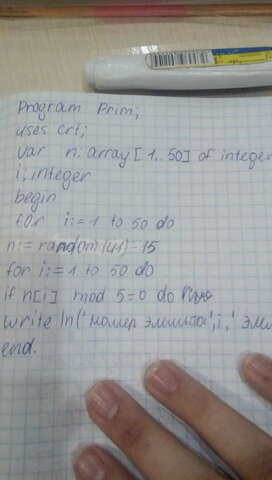 Program Prim;
uses crt;
var n: array [1..50] of integer
i: integer
begin
for i:=1 to 50 do
n:= random(41)-15
for i:=1 to 50 do
if n[i] mod 5=0 do
write ln('номер элемента', i, ' эле
end.